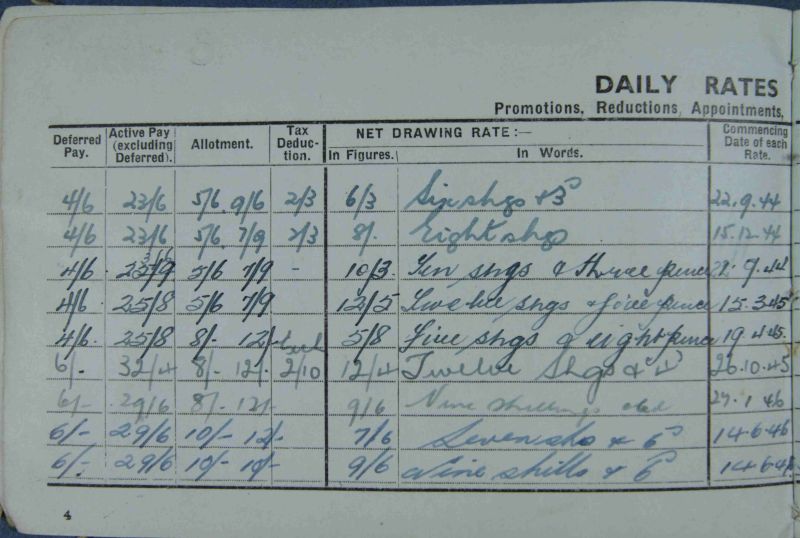 DAILY RATES
Promotions, Reductions, Appointments,
Deferred Pay. Active Pay (excluding Deferred). Allotment. Tax Deduc- tion. NET DRAWING RATE:— In Figures. In Words. Commencing Date of each Rate.
4/6 23/6 5/6 9/6 2/3 6/3 Six shgs & 3d 22.9.44
4/6 23/6 5/6 7/9 2/3 8/- Eight shgs 15.12.44
4/6 5/6 7/9 - 10/3 Ten shgs & three pence 9.44
4/6 25/8 5/6 7/9 12/5 Twelve shgs & five pence 15.3.45
4/6 25/8 8/- 12/- 5/8 Five shgs & eight pence 19.4.45
6/- 32/4 8/- 12/- 2/10 12/4 Twelve Shgs & 4d 26.10.45
6/- 29/6 8/- 12/- 9/6 Nine shillings 6d 27.1.46
6/- 29/6 10/- 12/- 7/6 Seven shs & 6d 14.6.46
6/- 29/6 10/- 10/- 9/6 Nine shills & 6d 14.6.46
4